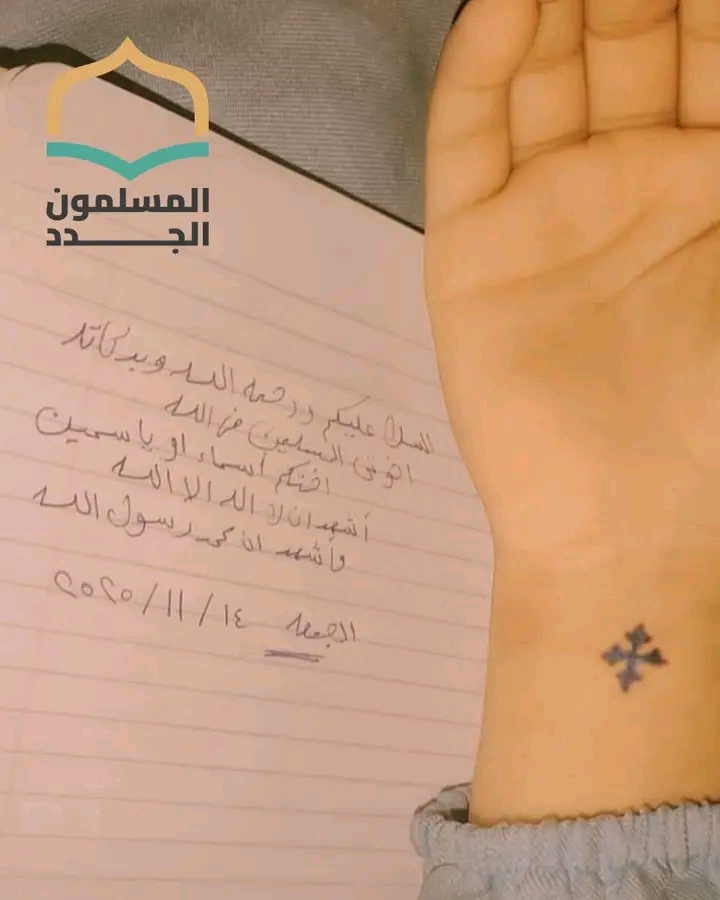 المسلمون
الجدد
السلام عليكم ورحمة الله وبركاته
اخوتى المسلمين فى الله
اختكم أسماء او ياسمين
أشهد ان لا اله الا الله
وأشهد ان محمد رسول الله
الجمعه ١٤ / ١١ / ٢٠٢٥